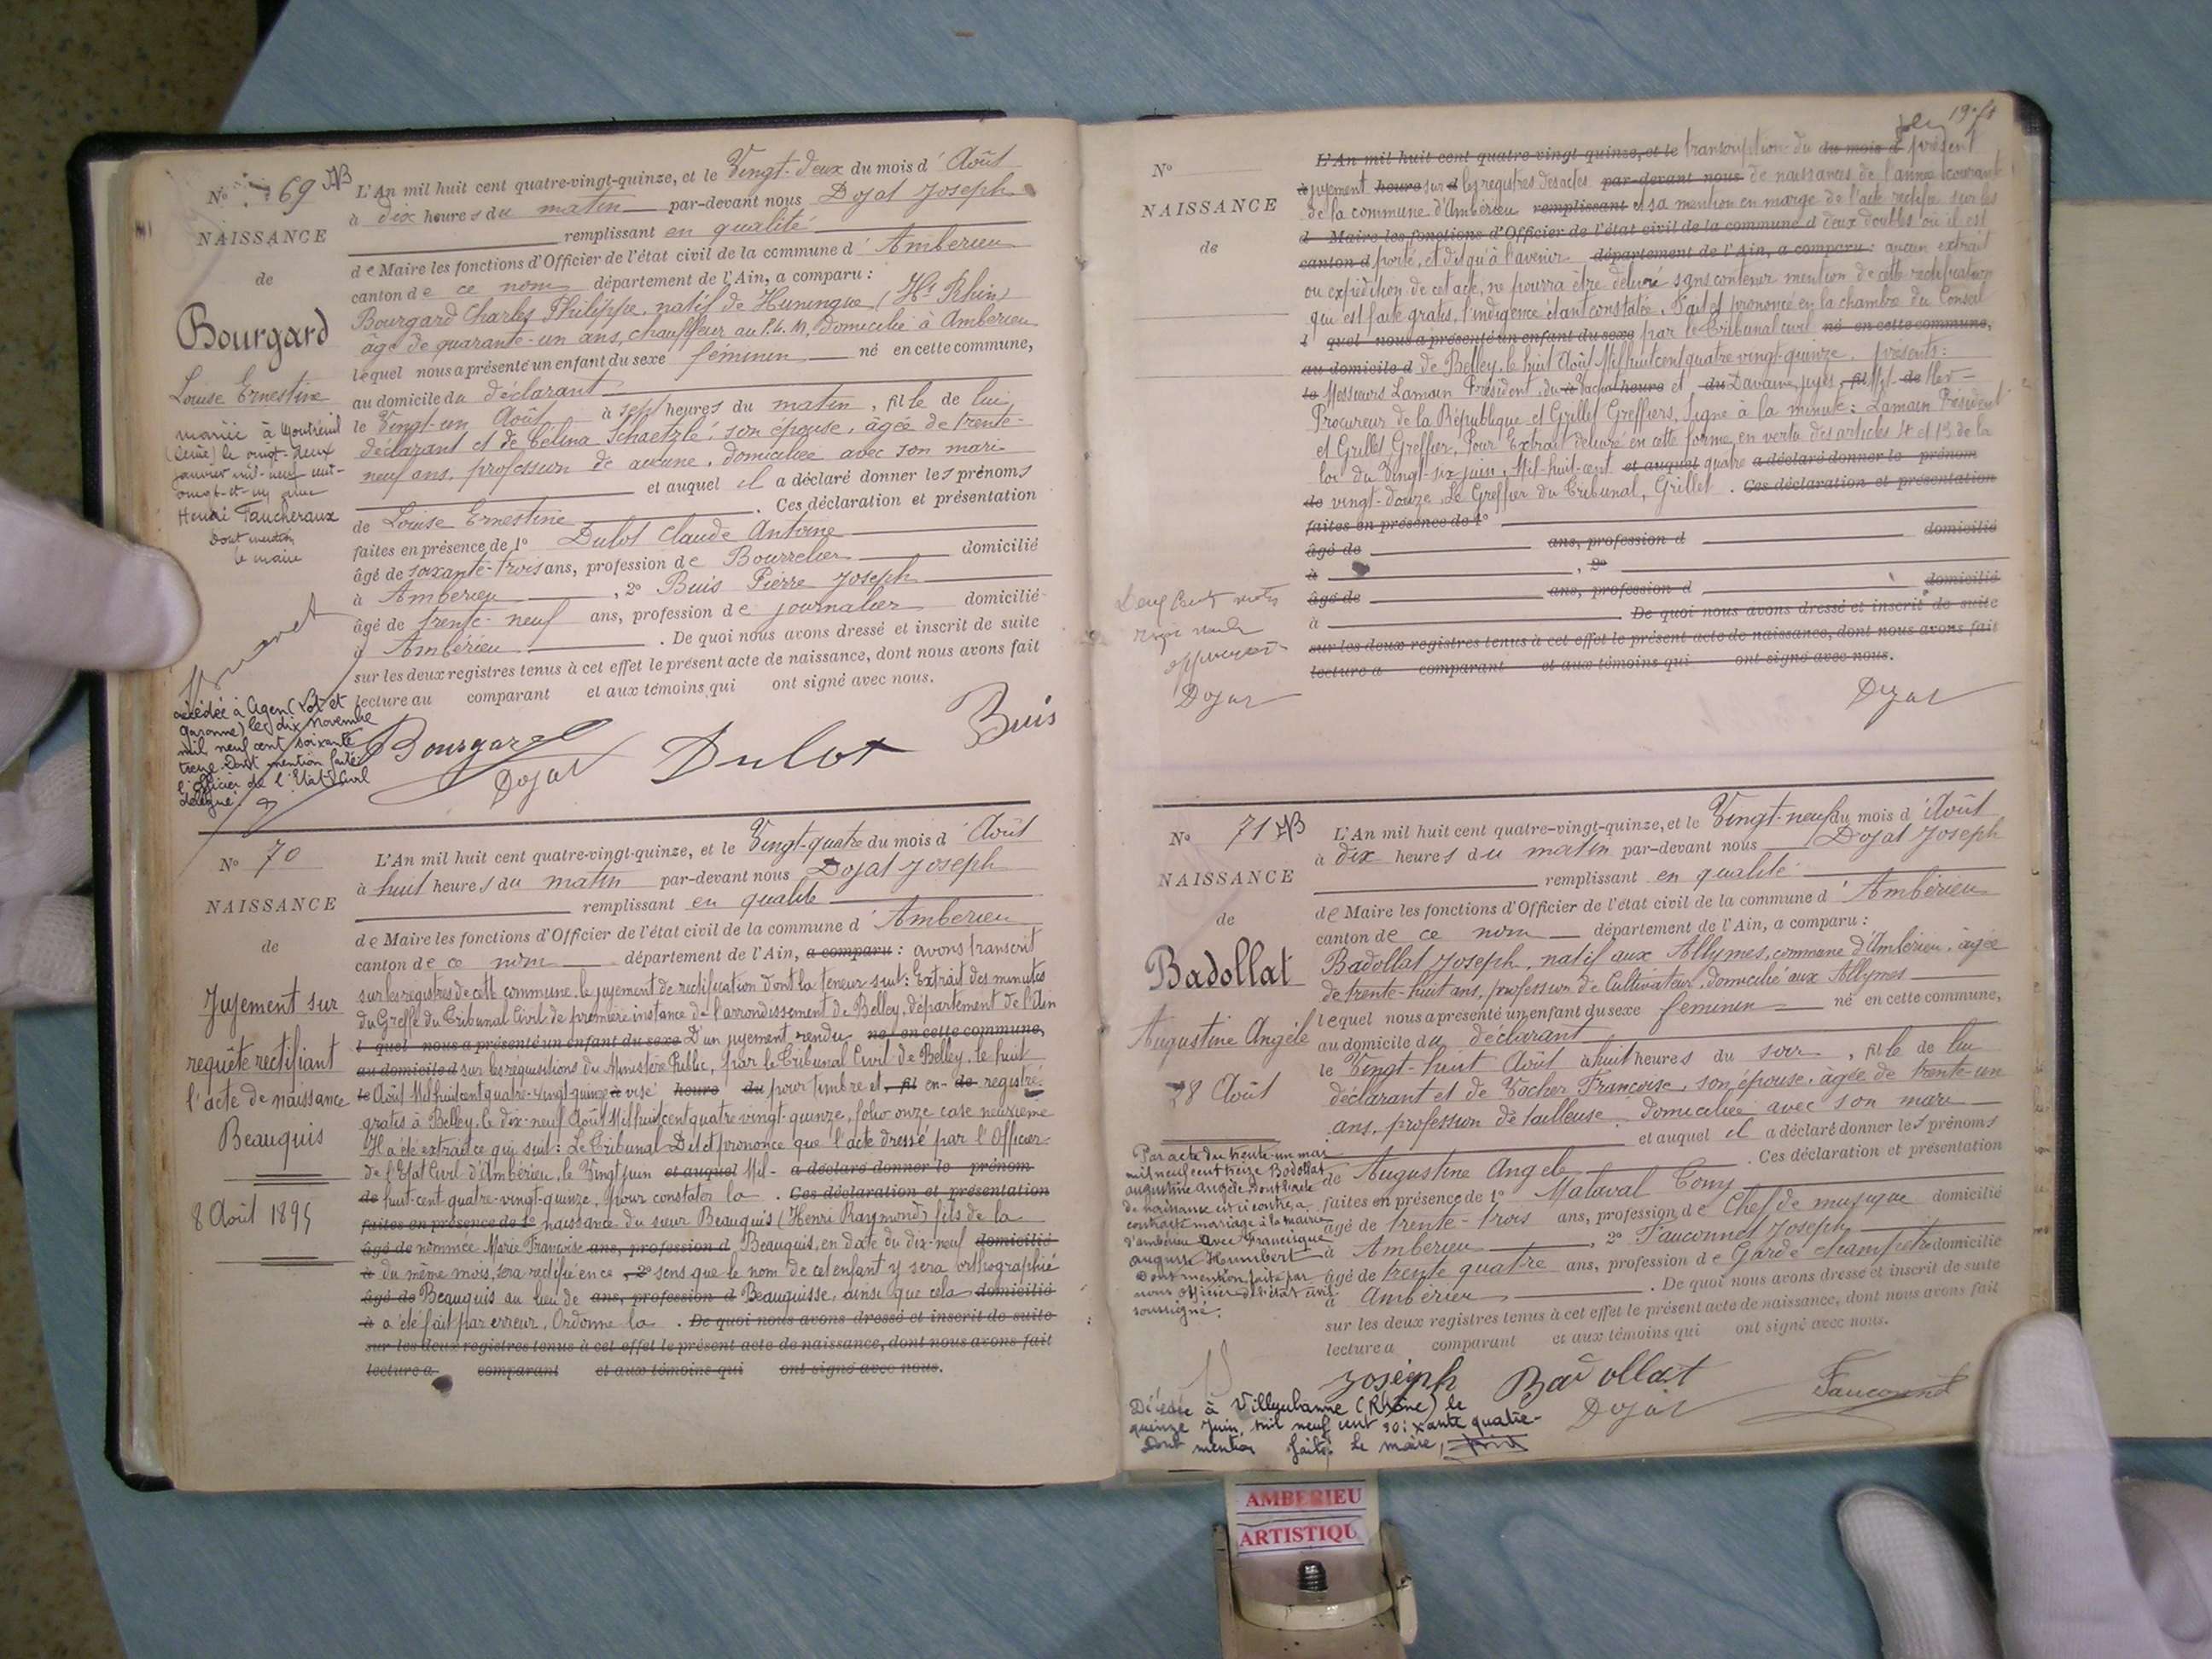 N° 69
NAISSANCE
de
Bourgard
Louise Ernestine
mariée à Montreuil
(Seine) le vingt-deux
janvier mil-neuf-cent-
vingt-et-un avec
Henri Faucheraux
Dont mention
le maire
décédée à Agen (Lot et
Garonne) le dix novembre
mil neuf cent soixante
treize. Dont mention faite
l'officier de l'Etat-Civil
délégué
L'An mil huit cent quatre-vingt-quinze, et le Vingt-deux du mois d'Août
à dix heures du matin par-devant nous Dojat Joseph
remplissant en qualité
de Maire les fonctions d'Officier de l'état civil de la commune d'Ambérieu
canton de ce nom département de l'Ain, a comparu :
Bourgard Charles Philippe, natif de Huningue (Ht Rhin)
âgé de quarante-un ans, chauffeur au P.L.M, domicilié à Ambérieu
lequel nous a présenté un enfant du sexe féminin né en cette commune,
au domicile du déclarant
le Vingt-un Août à sept heures du matin, fille de lui
déclarant et de Célina Schaetzlé, son épouse, âgée de trente-
neuf ans, profession de aucune, domiciliée avec son mari
et auquel il a déclaré donner les prénoms
de Louise Ernestine . Ces déclaration et présentation
faites en présence de 1° Dulot Claude Antoine
âgé de soixante-trois ans, profession de Bourrelier domicilié
à Ambérieu , 2° Buis Pierre Joseph
âgé de trente-neuf ans, profession de journalier domicilié
à Ambérieu . De quoi nous avons dressé et inscrit de suite
sur les deux registres tenus à cet effet le présent acte de naissance, dont nous avons fait
lecture au comparant et aux témoins qui ont signé avec nous.
Bourgard Dojat Dulot Buis
N° 70
NAISSANCE
de
Jugement sur
requête rectifiant
l'acte de naissance
Beauquis
8 Août 1895
L'An mil huit cent quatre-vingt-quinze, et le Vingt-quatre du mois d'Août
à huit heures du matin par-devant nous Dojat Joseph
remplissant en qualité
de Maire les fonctions d'Officier de l'état civil de la commune d'Ambérieu
canton de ce nom département de l'Ain, a comparu : avons transcrit
sur les registres de cette commune, le jugement de rectification dont la teneur suit : Extrait des minutes
du Greffe du Tribunal Civil de première instance de l'arrondissement de Belley, département de l'Ain
l quel nous a présenté un enfant du sexe D'un jugement rendu né en cette commune,
au domicile d sur les requisitions du Ministère Public, par le Tribunal Civil de Belley, le huit
le Août Mil huit cent quatre-vingt-quinze à visé heure du pour timbre et, fil en- de registré
gratis à Belley, le dix-neuf Août Mil huit cent quatre vingt-quinze, folio onze case neuvième
Il a été extrait ce qui suit : Le Tribunal Dit et prononce que l'acte dressé par l'Officier
de l'Etat Civil d'Ambérieu, le Vingt juin et auquel Mil- a déclaré donner le prénom
de huit-cent-quatre-vingt-quinze, pour constater la . Ces déclaration et présentation
faites en présence de 1° naissance du sieur Beauquis (Henri Raymond) fils de la
âgé de nommée Marie Françoise ans, profession d Beauquis, en date du dix-neuf domicilié
à du même mois, sera rectifié en ce , 2° sens que le nom de cet enfant y sera orthographié
âgé de Beauquis au lieu de ans, profession d Beauquisse, ainsi que cela domicilié
à a été fait par erreur, Ordonne la . De quoi nous avons dressé et inscrit de suite
sur les deux registres tenus à cet effet le présent acte de naissance, dont nous avons fait
lecture a comparant et aux témoins qui ont signé avec nous.
N°
NAISSANCE
de
Dojat
L'An mil huit cent quatre-vingt-quinze, et le transcription du du mois d présent
à jugement heure sur d les registres des actes par-devant nous de naissances de l'année courante
de la commune d'Ambérieu remplissant et sa mention en marge de l'acte rectifié sur les
d Maire les fonctions d'Officier de l'état civil de la commune d deux doubles où il est
canton d porté, et dit qu'à l'avenir département de l'Ain, a comparu : aucun extrait
ou expédition de cet acte, ne pourra être délivré sans contenir mention de cette rectification
qui est faite gratis, l'indigence étant constatée. Fait et prononcé en la chambre du Conseil
l quel nous a présenté un enfant du sexe par le Tribunal civil né en cette commune,
au domicile d de Belley, le huit Août Mil huit cent quatre vingt-quinze. présents :
le Messieurs Lamain Président, du à Vachat heure et du Davaine juges, fil Mil- de Her-
Procureur de la République et Grillet Greffiers. Signé à la minute : Lamain Président
et Grillet Greffier. Pour Extrait délivré en cette forme en vertu des articles 4 et 13 de la
loi du Vingt-six juin, Mil-huit-cent et auquel quatre a déclaré donner le prénom
de vingt-douze. Le Greffier du Tribunal, Grillet . Ces déclaration et présentation
faites en présence de 1°
âgé de ans, profession d domicilié
à , 2°
âgé de ans, profession d domicilié
à De quoi nous avons dressé et inscrit de suite
sur les deux registres tenus à cet effet le présent acte de naissance, dont nous avons fait
lecture a comparant et aux témoins qui ont signé avec nous.
Dojat
N° 71
NAISSANCE
de
Badollat
Augustine Angèle
28 Août
Par acte du trente-un mai
mil neuf cent treize Badollat
Augustine Angèle dont l'acte
de naissance est ci contre, a
contracté mariage à la mairie
d'Ambérieu avec Francisque
Auguste Humbert
Dont mention faite par
nous officier de l'état civil
soussigné.
L'An mil huit cent quatre-vingt-quinze, et le Vingt-neuf du mois d'Août
à dix heures du matin par-devant nous Dojat Joseph
remplissant en qualité
de Maire les fonctions d'Officier de l'état civil de la commune d'Ambérieu
canton de ce nom département de l'Ain, a comparu :
Badollat Joseph, natif aux Allymes, commune d'Ambérieu, âgée
de trente-huit ans, profession de Cultivateur, domicilié aux Allymes
lequel nous a présenté un enfant du sexe féminin né en cette commune,
au domicile du déclarant
le Vingt-huit Août à huit heures du soir , fille de lui
déclarant et de Vacher Françoise, son épouse, âgée de trente-un
ans, profession de tailleuse, domiciliée avec son mari
et auquel il a déclaré donner les prénoms
de Augustine Angèle . Ces déclaration et présentation
faites en présence de 1° Mataval Tony
âgé de trente-trois ans, profession de Chef de musique domicilié
à Ambérieu , 2° Fauconnet Joseph
âgé de trente quatre ans, profession de Garde champêtre domicilié
à Ambérieu . De quoi nous avons dressé et inscrit de suite
sur les deux registres tenus à cet effet le présent acte de naissance, dont nous avons fait
lecture a comparant et aux témoins qui ont signé avec nous.
Joseph Badollat Dojat Fauconnet
Décédée à Villeurbanne (Rhône) le
quinze Juin, mil neuf cent soixante quatre-
Dont mention faite. Le maire,
AMBERIEU
ARTISTIQU